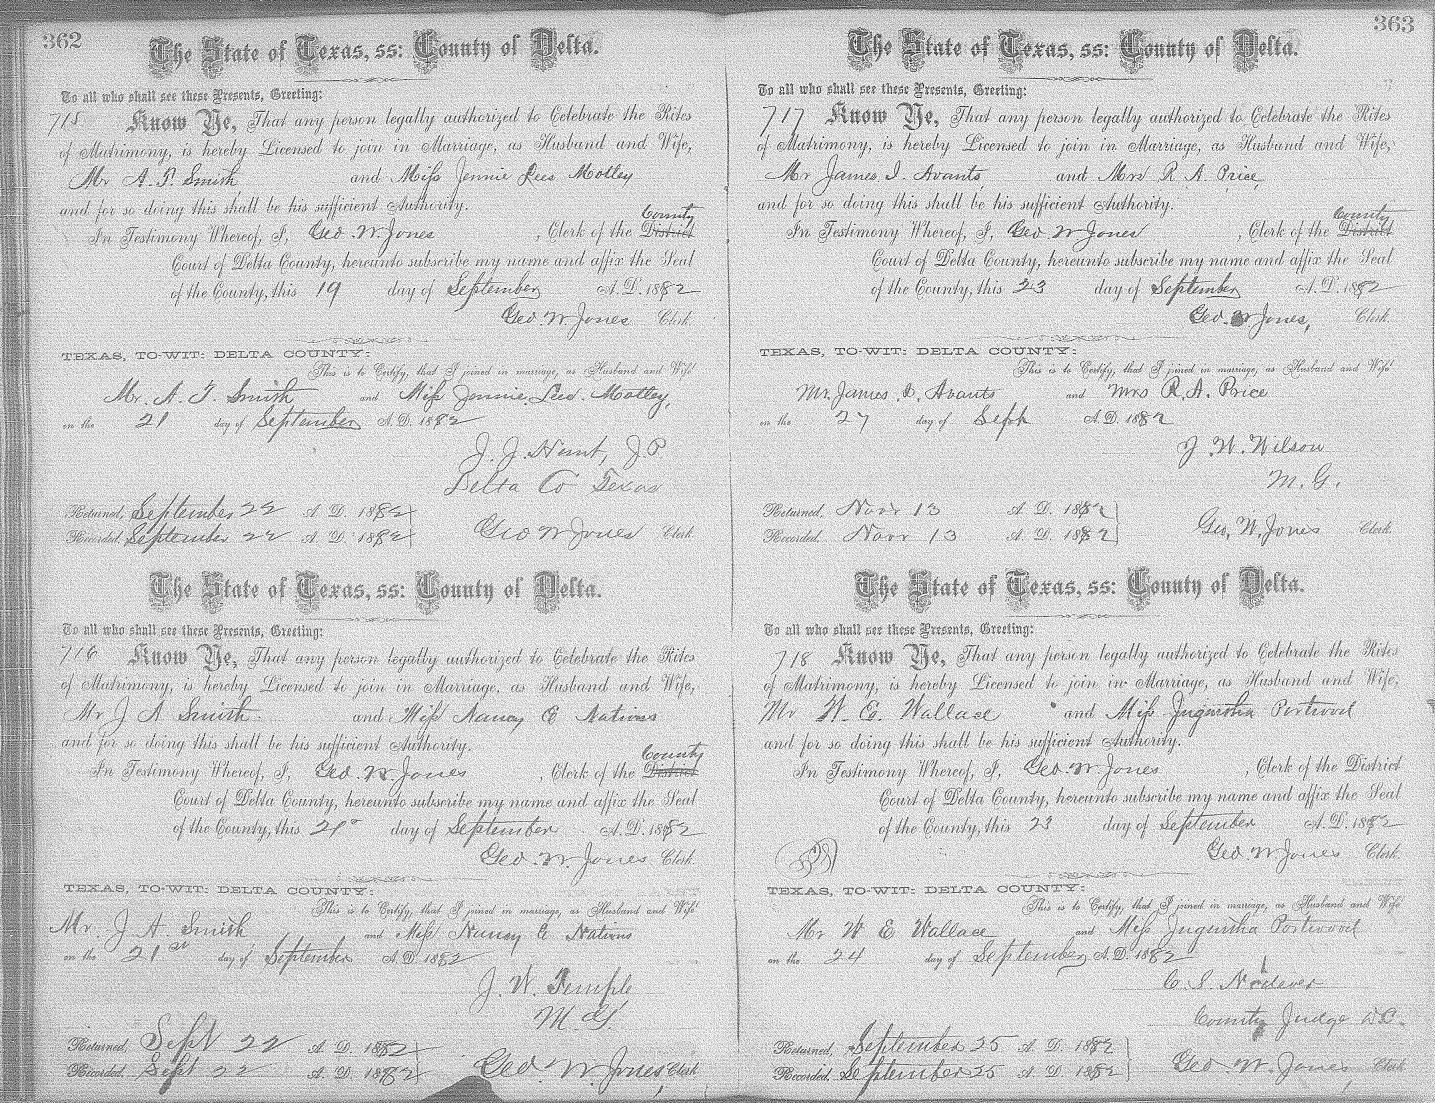 362
The State of Texas, ss: County of Delta.
To all who shall see these Presents, Greeting:
715 Know Ye, That any person legally authorized to Celebrate the Rites
of Matrimony, is hereby Licensed to join in Marriage, as Husband and Wife,
Mr A. T. Smith, and Miss Jennie Lees Motley
and for so doing this shall be his sufficient Authority.
County
In Testimony Whereof, I, Geo. W Jones, Clerk of the District
Court of Delta County, hereunto subscribe my name and affix the Seal
of the County, this 19 day of September A. D. 1882
Geo. W. Jones Clerk.
TEXAS, TO-WIT: DELTA COUNTY:
This is to Certify, that I joined in marriage, as Husband and Wife
Mr. A. T. Smith and Miss Jennie Lees. Motley,
on the 21 day of September A. D. 1882
J. J. Hunt, J. P
Delta Co Texas
Returned, September 22 A. D. 1882
Recorded, September 22 A. D. 1882 Geo W Jones Clerk
The State of Texas, ss: County of Delta.
To all who shall see these Presents, Greeting:
716 Know Ye, That any person legally authorized to Celebrate the Rites
of Matrimony, is hereby Licensed to join in Marriage, as Husband and Wife,
Mr J A Smith and Miss Nancy E Nations
and for so doing this shall be his sufficient Authority.
County
In Testimony Whereof, I, Geo. W. Jones, Clerk of the District
Court of Delta County, hereunto subscribe my name and affix the Seal
of the County, this 21st day of September A. D. 1882
Geo. W Jones Clerk.
TEXAS, TO-WIT: DELTA COUNTY:
This is to Certify, that I joined in marriage, as Husband and Wife
Mr. J A Smith and Miss Nancy E Nations
on the 21st day of September A. D. 1882
J. W. Temple
M. G
Returned, Sept 22 A. D. 1882
Recorded, Sept 22 A. D. 1882 Geo W. Jones, Clerk
363
The State of Texas, ss: County of Delta.
To all who shall see these Presents, Greeting:
717 Know Ye, That any person legally authorized to Celebrate the Rites
of Matrimony, is hereby Licensed to join in Marriage, as Husband and Wife,
Mr James I. Avants, and Mrs R A. Price,
and for so doing this shall be his sufficient Authority.
County
In Testimony Whereof, I, Geo. W Jones, Clerk of the District
Court of Delta County, hereunto subscribe my name and affix the Seal
of the County, this 23 day of September A. D. 1882
Geo. W Jones, Clerk.
TEXAS, TO-WIT: DELTA COUNTY:
This is to Certify, that I joined in marriage, as Husband and Wife
Mr. James Avants and Mrs R. A. Price
on the 27 day of Sept A. D. 1882
J. W. Wilson
M. G.
Returned, Novr 13 A. D. 1882
Recorded, Novr 13 A. D. 1882 Geo, W, Jones Clerk
The State of Texas, ss: County of Delta.
To all who shall see these Presents, Greeting:
718 Know Ye, That any person legally authorized to Celebrate the Rites
of Matrimony, is hereby Licensed to join in Marriage, as Husband and Wife,
Mr W. E. Wallace and Miss Jugurtha Portwood
and for so doing this shall be his sufficient Authority.
In Testimony Whereof, I, Geo. W Jones, Clerk of the District
Court of Delta County, hereunto subscribe my name and affix the Seal
of the County, this 23 day of September A. D. 1882
Geo. W Jones Clerk.
TEXAS, TO-WIT: DELTA COUNTY:
This is to Certify, that I joined in marriage, as Husband and Wife
Mr W E Wallace and Miss Jugurtha Portwood
on the 24 day of September A. D. 1882
C. S. Nidever
County Judge D.C.
Returned, September 25 A. D. 1882
Recorded, September 25 A. D. 1882 Geo W. Jones Clerk